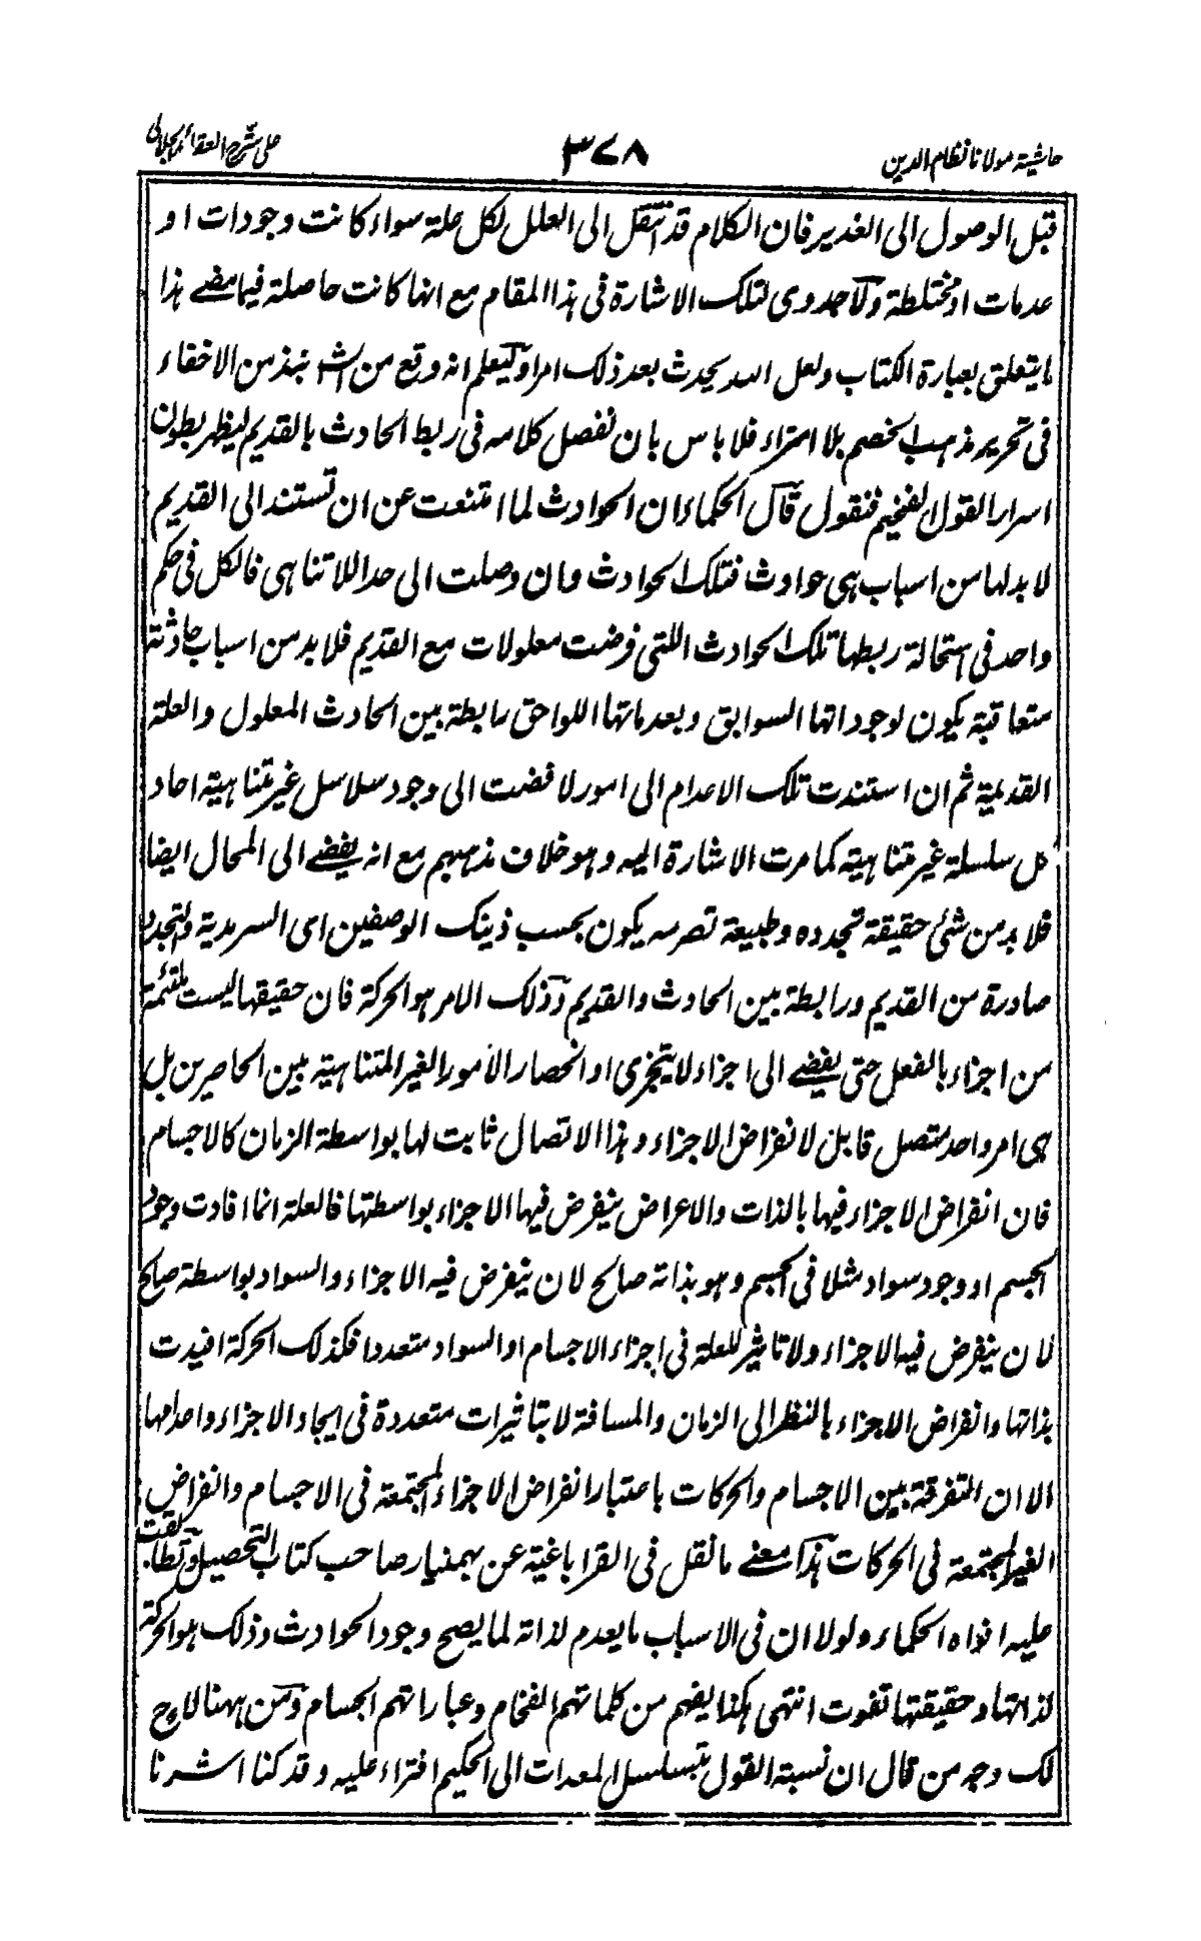 حاشية مولانا نظام الدين ٣٧٨ على شرح العقائد الجلالى
قبل الوصول الى الغدير فان الكلام قد انتقل الى العلل لكل علة سواء كانت وجودات او
عدمات او مختلطة ولا جدوى لتلك الاشارة فى هذا المقام مع انها كانت حاصلة فيما مضى هذا
ما يتعلق بعبارة الكتاب ولعل الله يحدث بعد ذلك امرا وليعلم انه وقع من الش نبذ من الاخفاء
فى تحرير مذهب الخصم بلا امتراء فلا باس بان نفصل كلامه فى ربط الحادث بالقديم ليظهر بطون
اسرار القول الفخيم فنقول قال الحكماء ان الحوادث لما امتنعت عن ان تستند الى القديم
لا بد لها من اسباب هى حوادث فتلك الحوادث وان وصلت الى حد اللاتناهى فالكل فى حكم
واحد فى استحالة ربطها تلك الحوادث اللتى فرضت معلولات مع القديم فلا بد من اسباب حادثة
متعاقبة يكون لوجوداتها السوابق وبعدماتها اللواحق رابطة بين الحادث المعلول والعلة
القديمة ثم ان استندت تلك الاعدام الى امور لافضت الى وجود سلاسل غير متناهية احاد
كل سلسلة غير متناهية كما مرت الاشارة اليه وهو خلاف مذهبهم مع انه يفضى الى المحال ايضا
فلا بد من شئ حقيقة تجدده وطبيعة تصرمه يكون بحسب ذينك الوصفين اى السرمدية والتجدد
صادرة من القديم ورابطة بين الحادث والقديم وذلك الامر هو الحركة فان حقيقتها ليست ملتئمة
من اجزاء بالفعل حتى يفضى الى اجزاء لا يتجزى او انحصار الامور الغير المتناهية بين الحاصرين بل
هى امر واحد متصل قابل لانفراض الاجزاء وهذا الاتصال ثابت لها بواسطة الزمان كالاجسام
فان انفراض الاجزاء فيها بالذات والاعراض ينفرض فيها الاجزاء بواسطتها فالعلة انما افادت وجود
الجسم او وجود سواد مثلا فى الجسم وهو بذاته صالح لان ينفرض فيه الاجزاء والسواد بواسطة صالح
لان ينفرض فيه الاجزاء ولا تاثير للعلة فى اجزاء الاجسام او السواد متعددا فكذلك الحركة افيدت
بذاتها وانفراض الاجزاء بالنظر الى الزمان والمسافة لا بتاثيرات متعددة فى ايجاد الاجزاء واعدامها
الا ان التفرقة بين الاجسام والحركات باعتبار انفراض الاجزاء المجتمعة فى الاجسام وانفراض
الغير المجتمعة فى الحركات هذا معنى ما نقل فى القراباغية عن بهمنيار صاحب كتاب التحصيل وتطابقت
عليه افواه الحكماء ولولا ان فى الاسباب ما يعدم لذاته لما يصح وجود الحوادث وذلك هو الحركة
لذاتها وحقيقتها تفوت انتهى هكذا يفهم من كلماتهم الفخام وعباراتهم الجسام ومن ههنا لاح
لك وجه من قال ان نسبة القول بتسلسل المعدات الى الحكيم افتراء عليه وقد كنا اشرنا